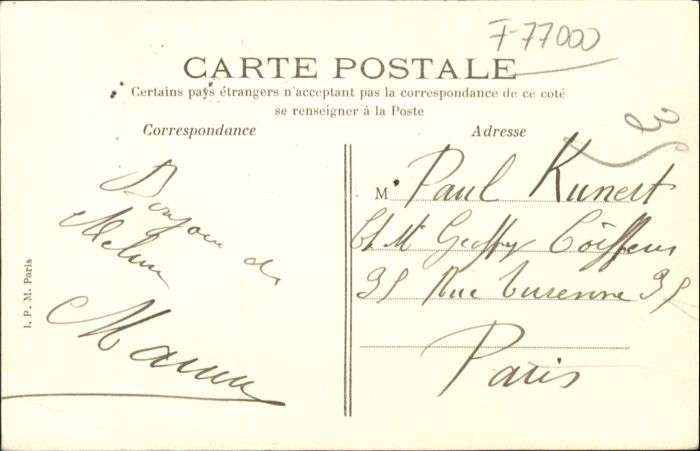 F-77000
CARTE POSTALE
Certains pays étrangers n'acceptant pas la correspondance de ce coté
se renseigner à la Poste
Correspondance
Adresse
3
Bonjour de
Melun
I. P. M. Paris
M Paul Kunert
Ch Mr Geoffroy Coiffeur
35 Rue Turenne 35
Paris